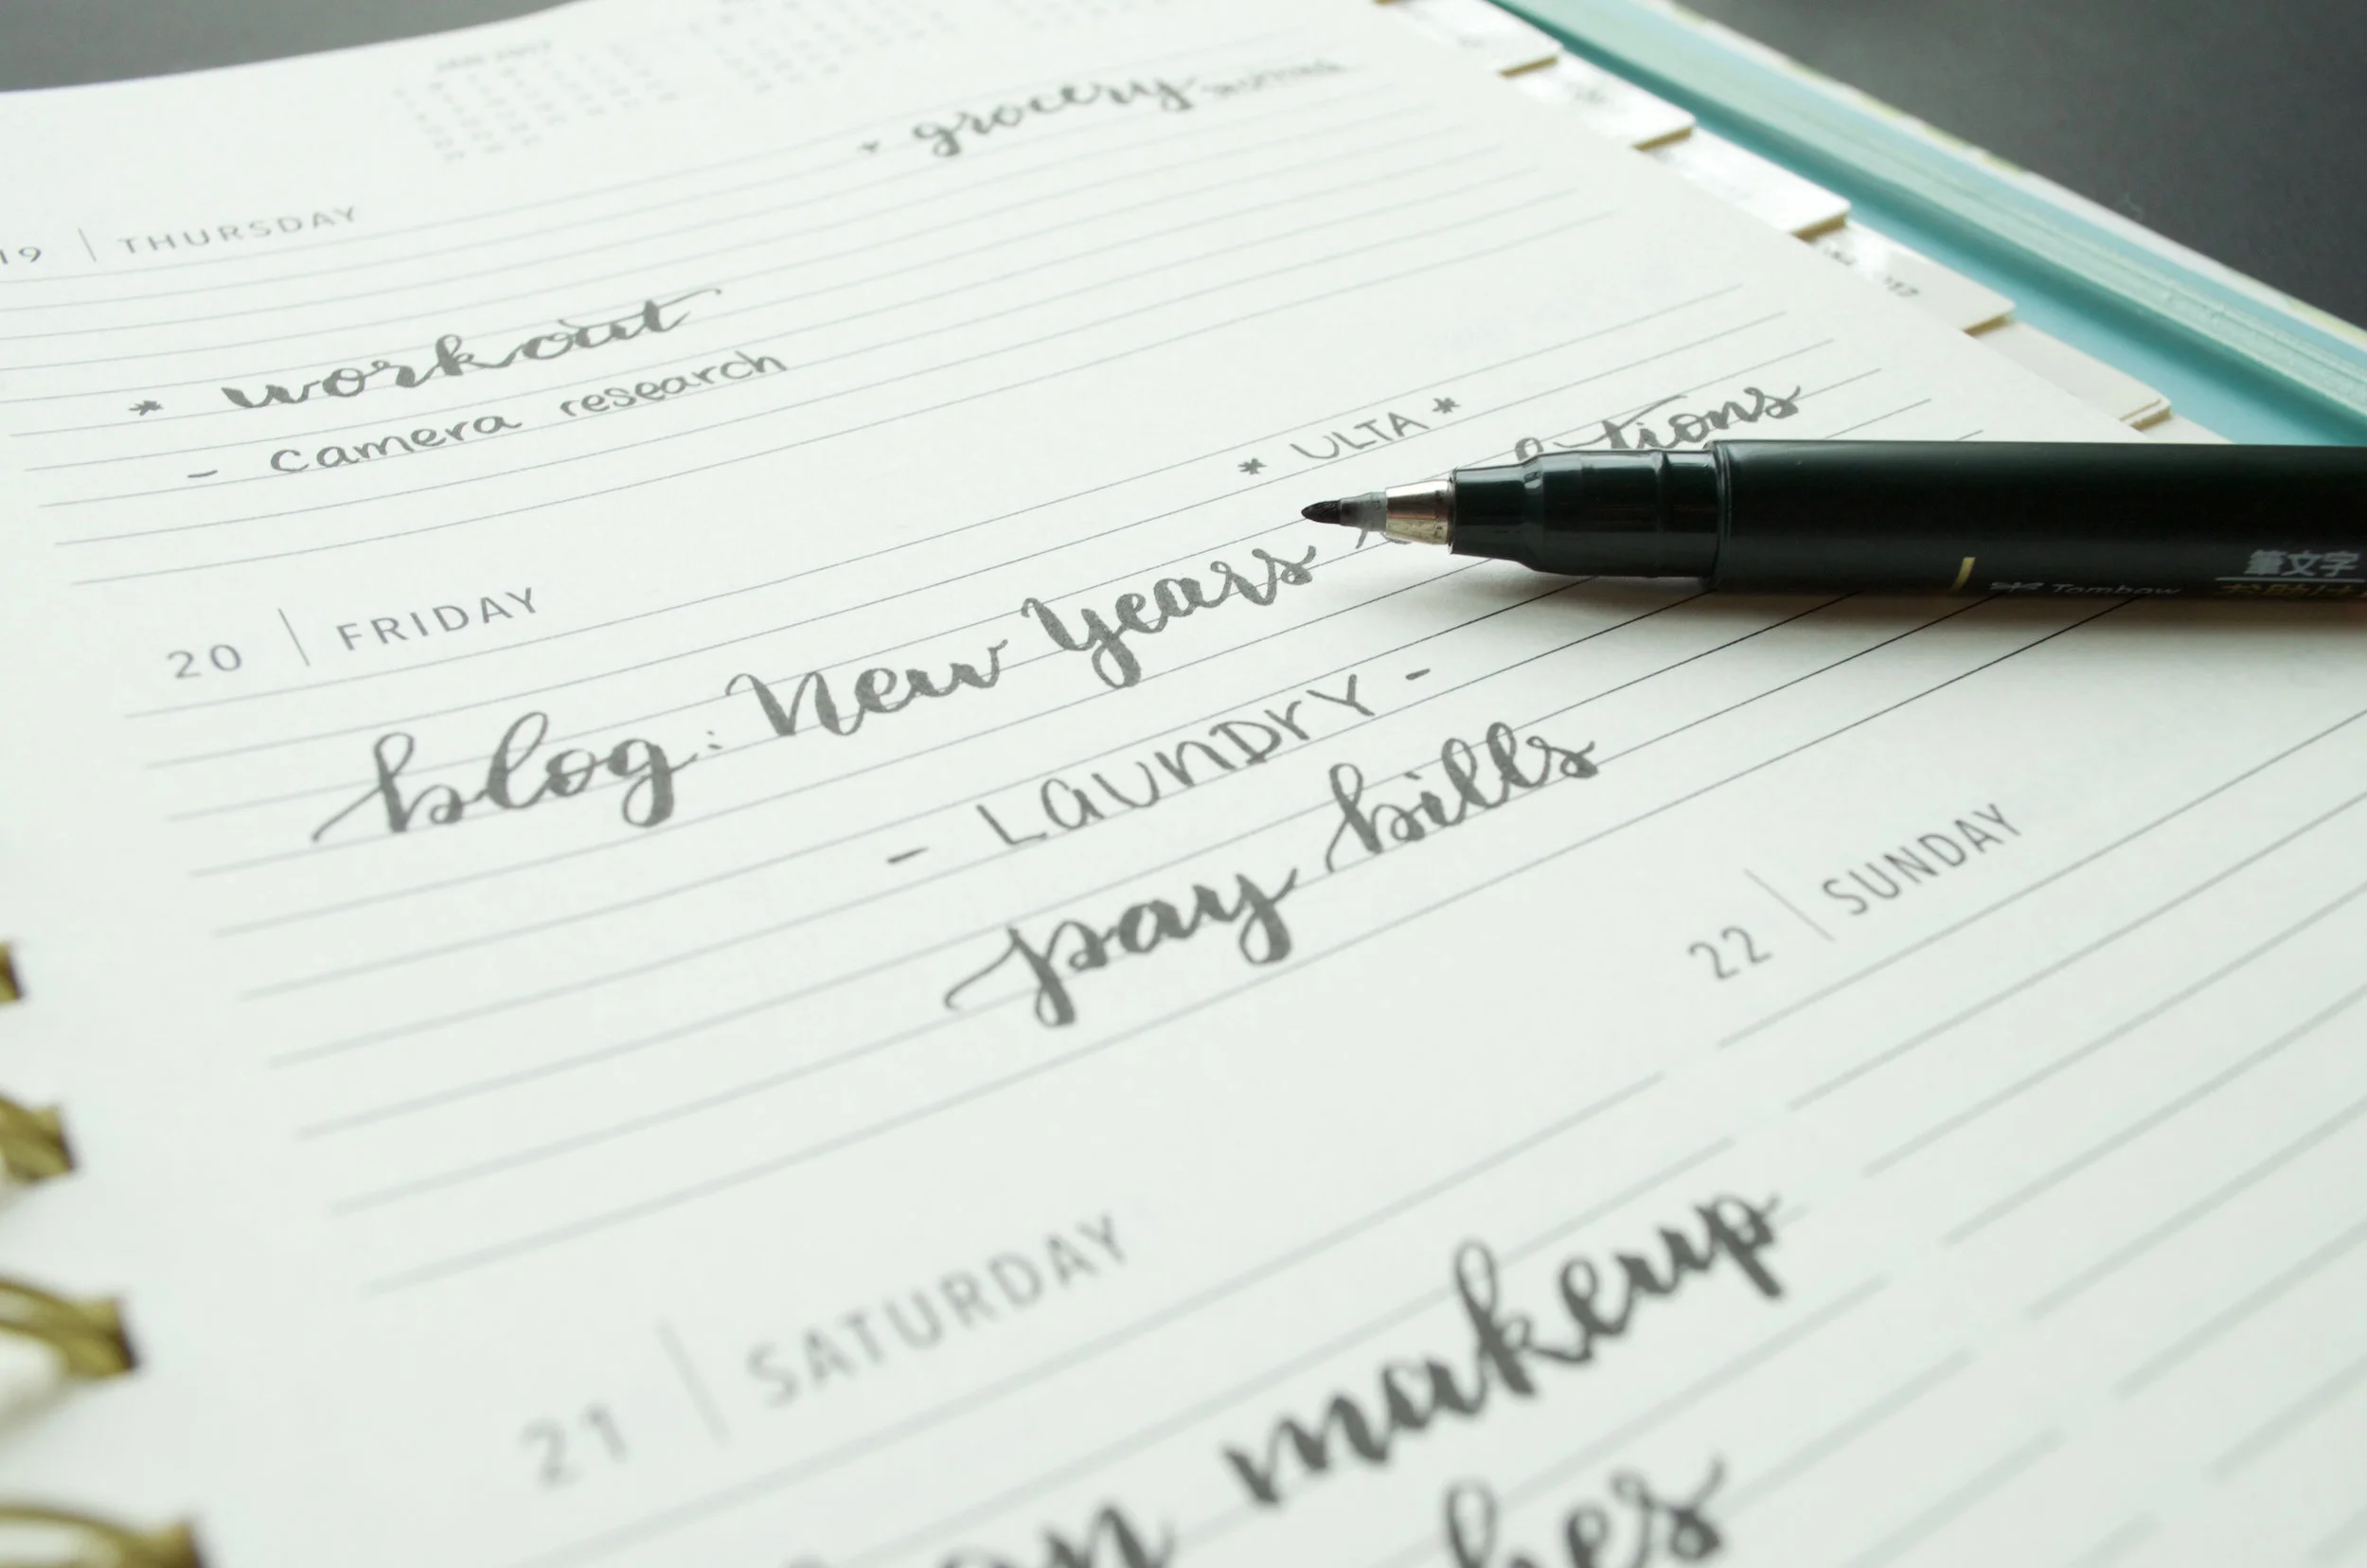 * grocery
19 | THURSDAY
* workout
- camera research
* ULTA *
20 | FRIDAY
blog: New Years
- LAUNDRY -
pay bills
22 | SUNDAY
21 | SATURDAY
makeup
Tombow
筆文字